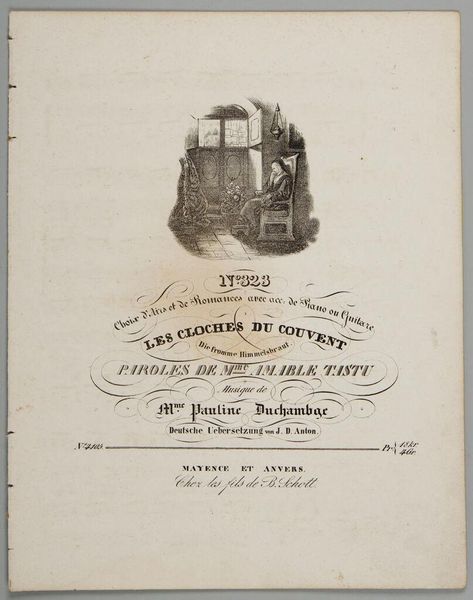 No. 323
Choix d'Airs et de Romances avec acc. de Piano ou Guitare
LES CLOCHES DU COUVENT
Die fromme Himmelsbraut.
PAROLES DE Mme AMABLE TASTU
Musique de
Mme Pauline Duchambge
Deutsche Uebersetzung von J. D. Anton.
No. 4105. Pr. 18 kr. 4 Gr.
MAYENCE ET ANVERS.
Chez les fils de B. Schott.